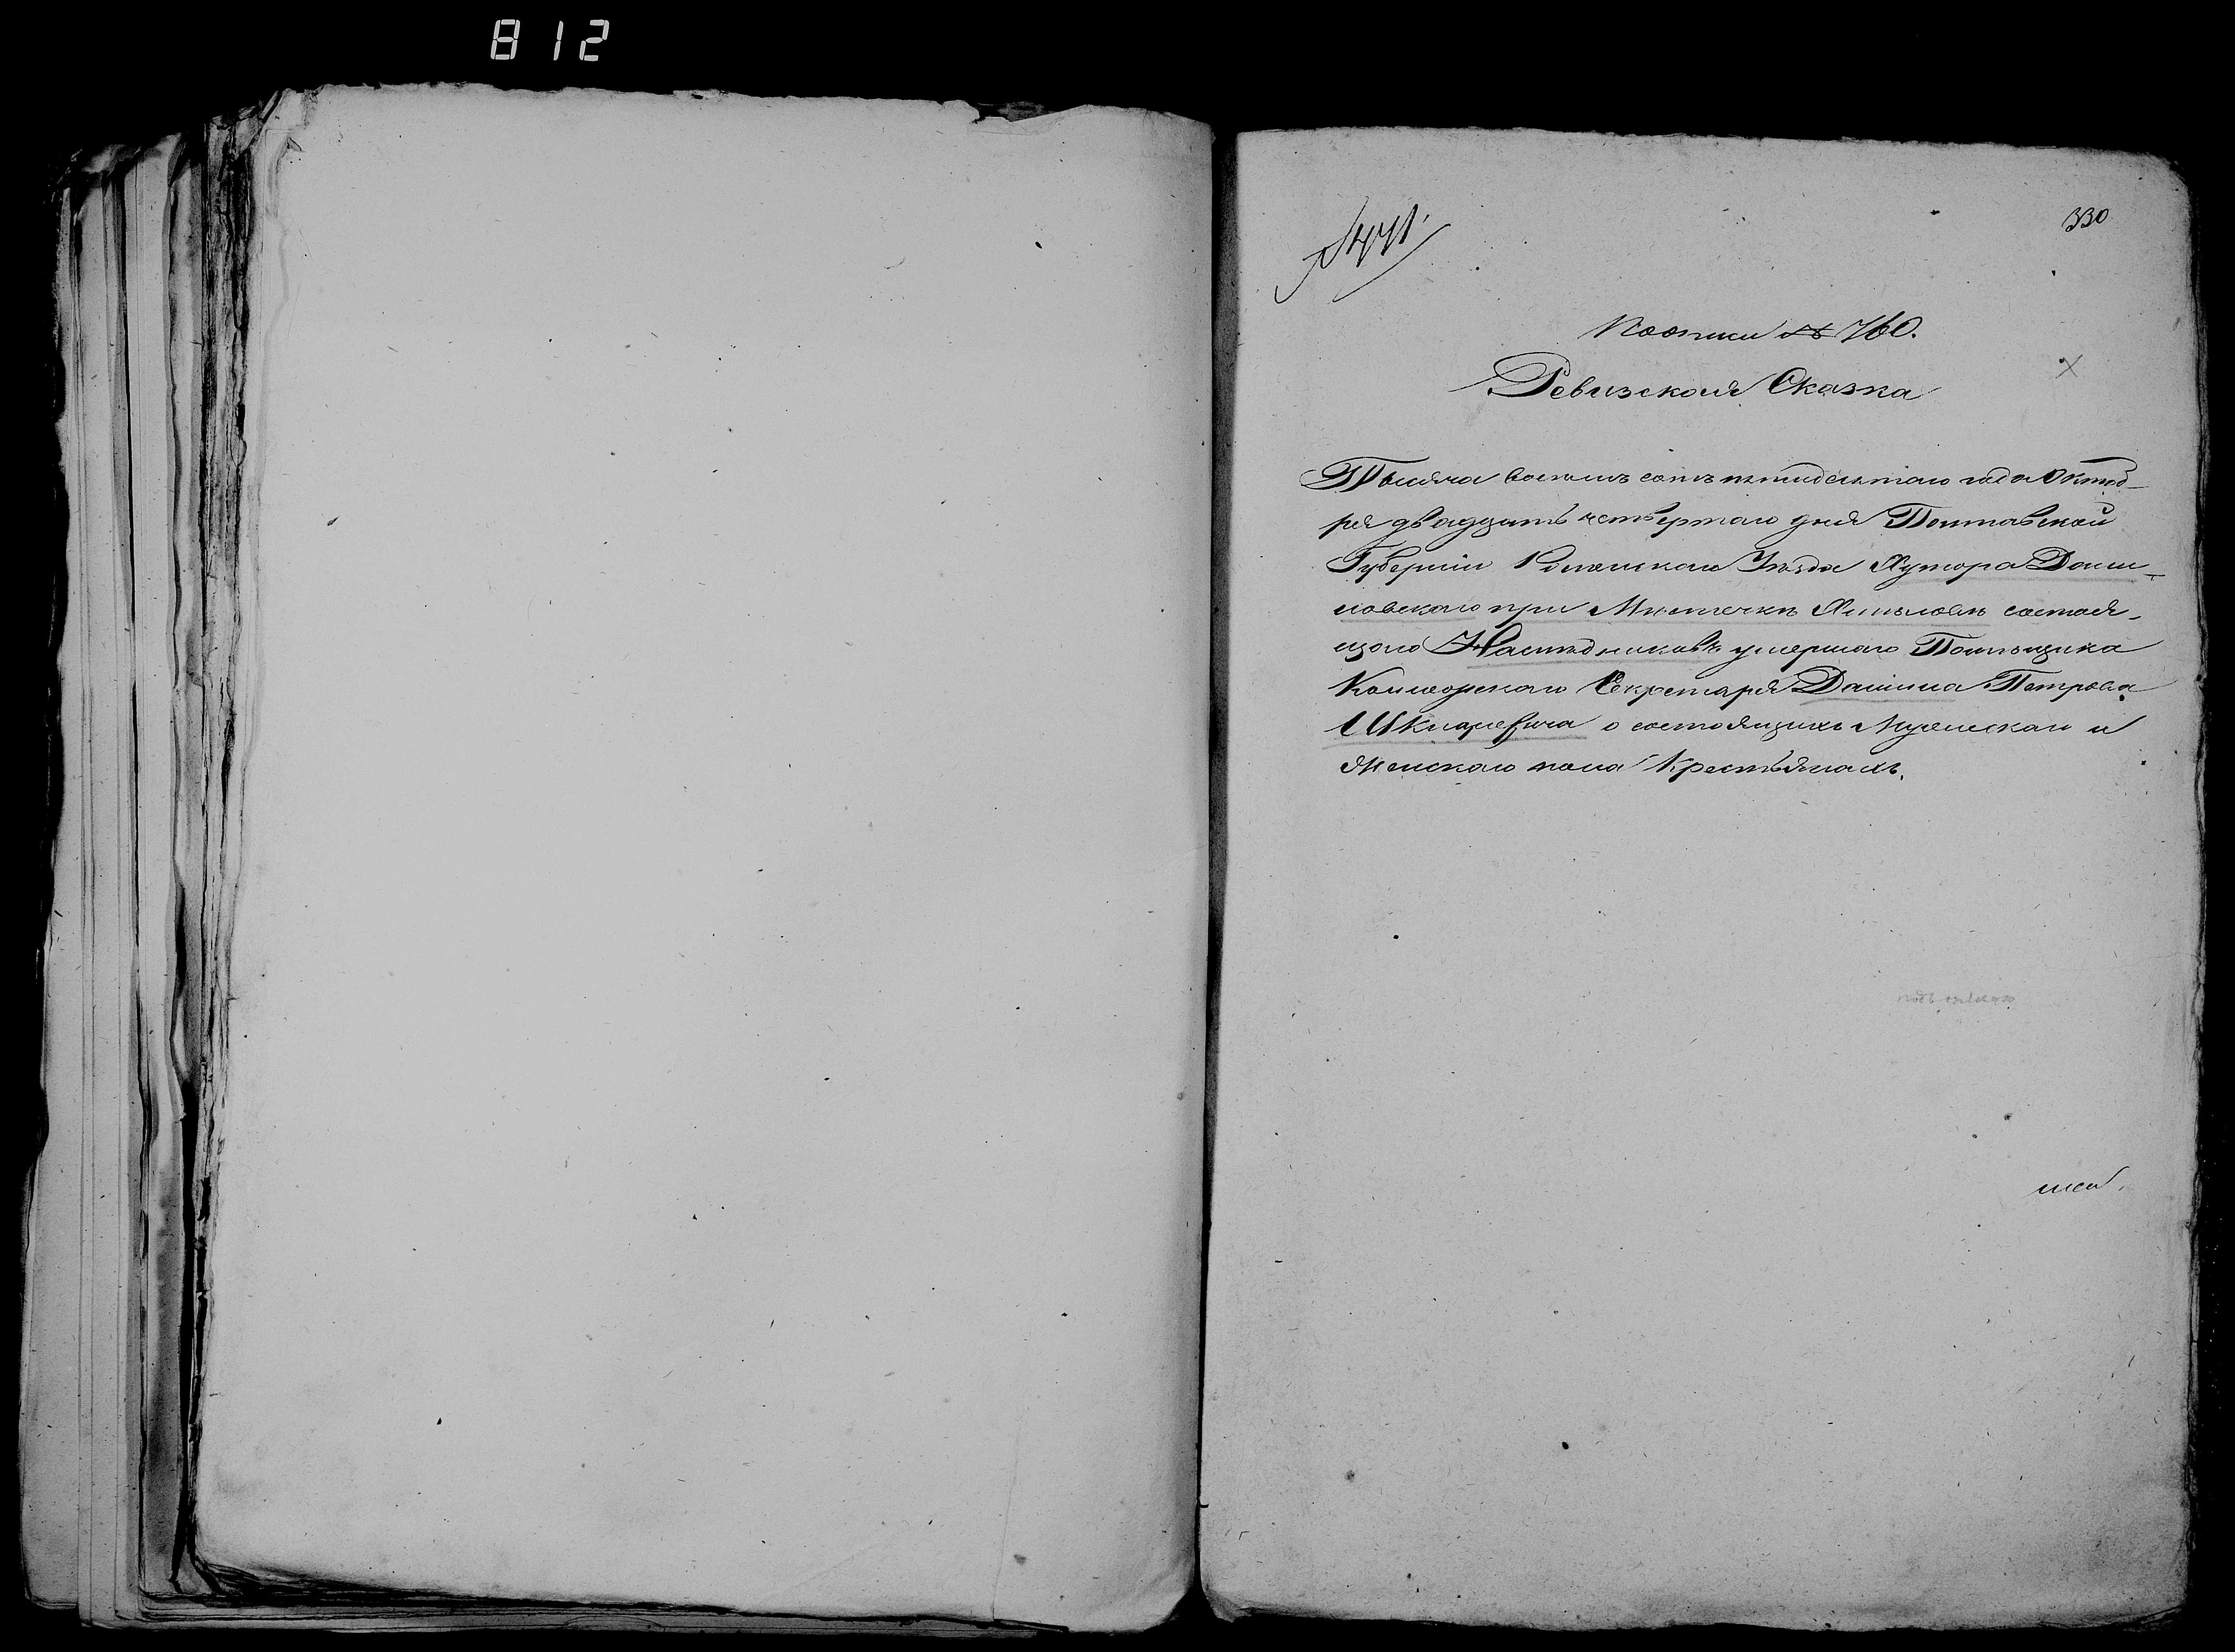 812
330
По описи № 760.
Ревизская Сказка
Тысяча восемь сотъ пятидесятаго года Октяб-
ря двадцать четвертого дня Полтавской
Губерніи Роменскаго Уезда Хутора Дани-
ловского при Местечке состоя-
щого Наследниковъ умершаго Помещика
Колежского Секретаря Данила Петрова
Шкляревича о состоящихъ Мужескаго и
Женскаго пола Крестьянахъ.